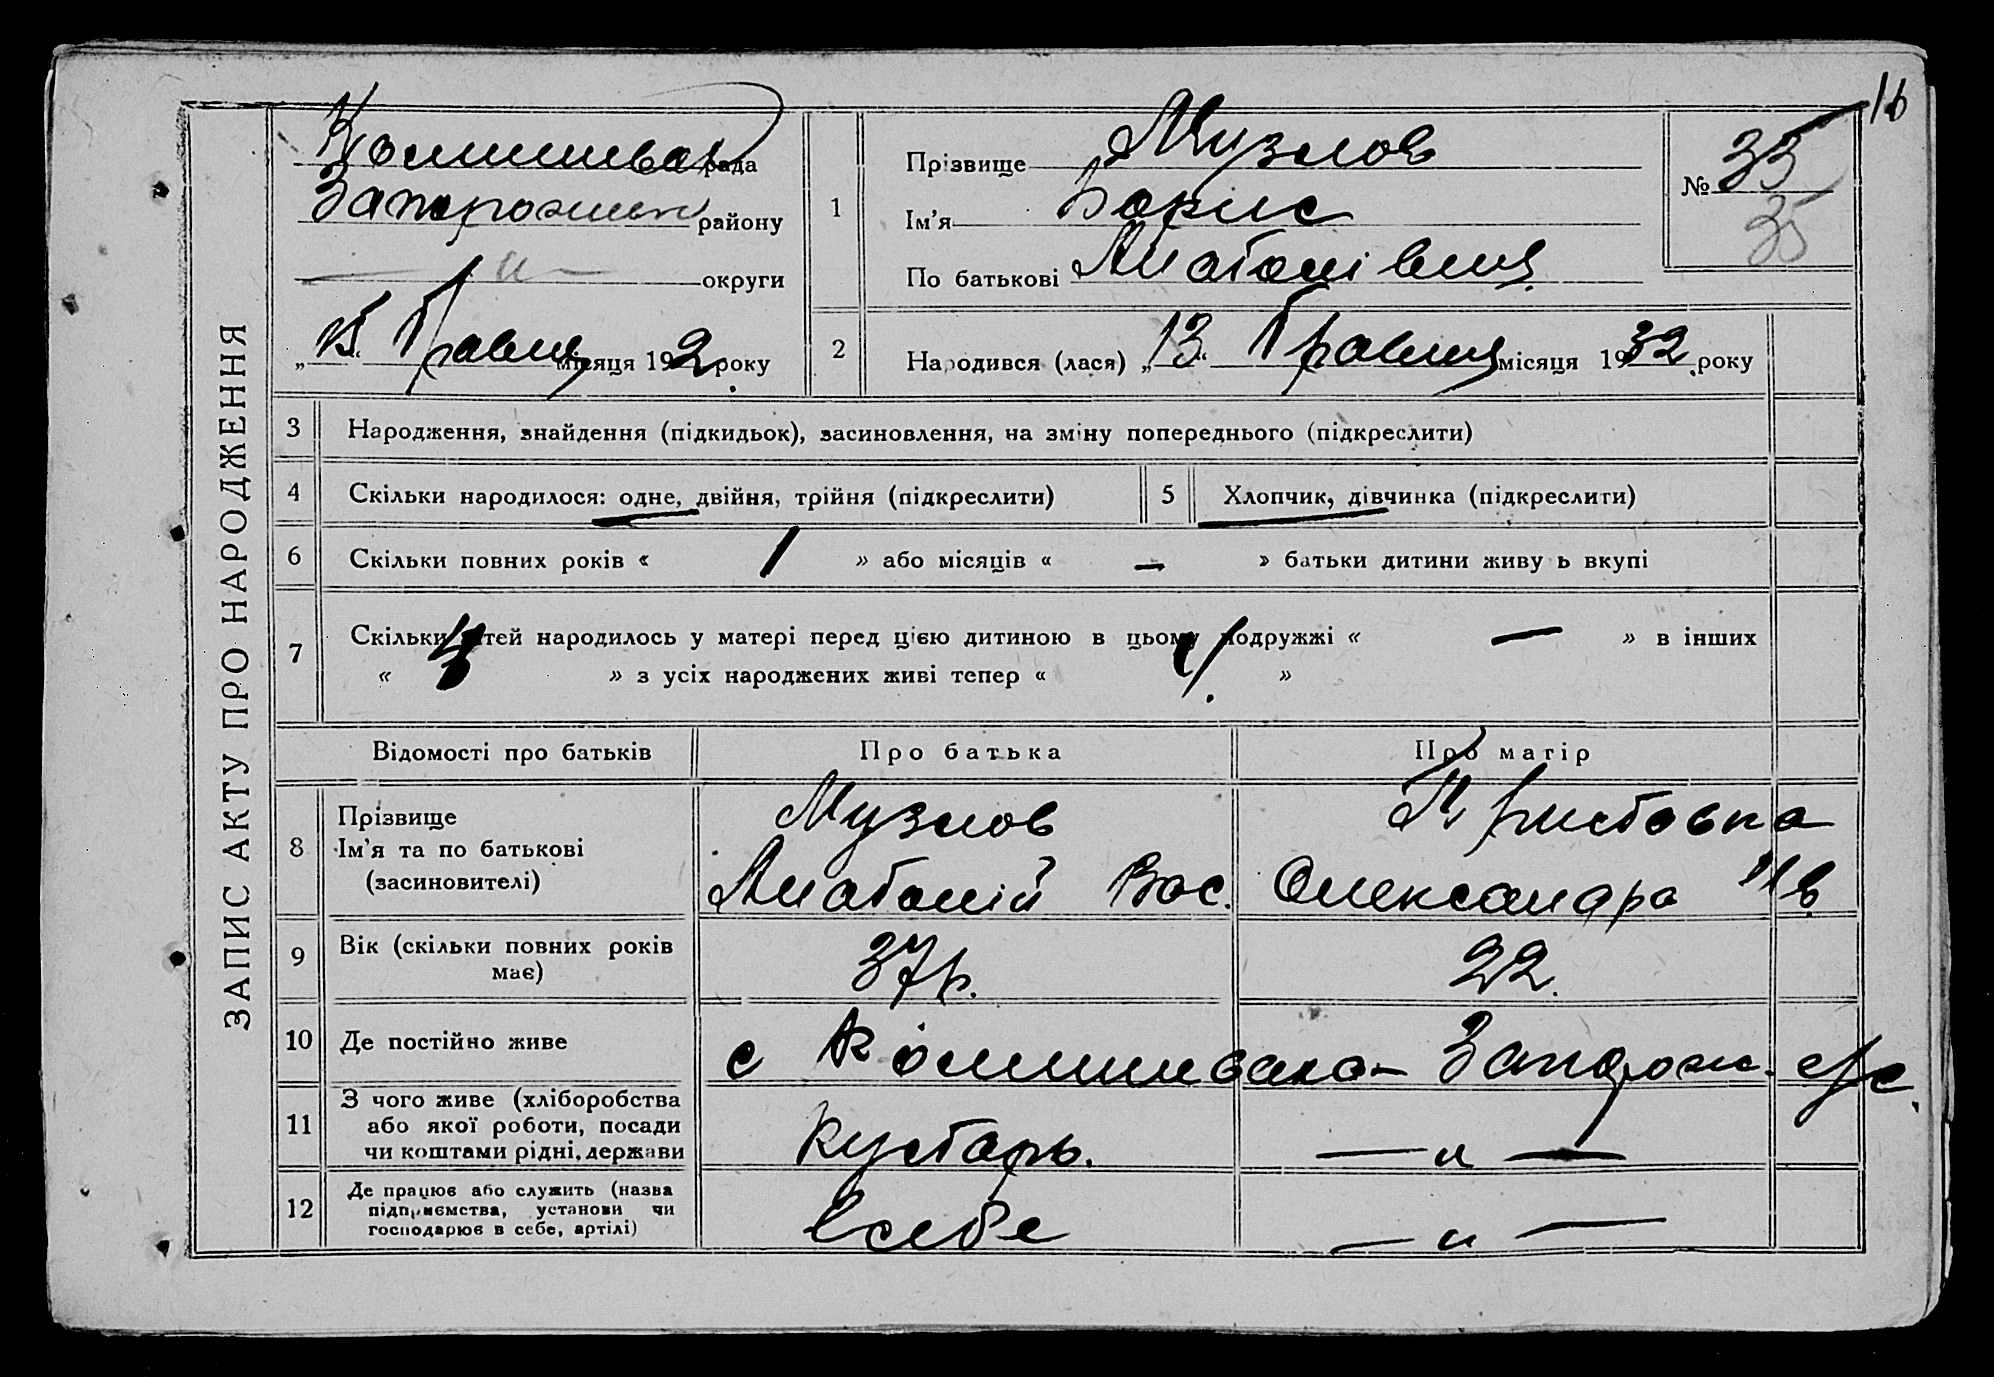 16
ЗАПИС АКТУ ПРО НАРОДЖЕННЯ
Комишеван рада
Запорожськ району
— " — округи
„15“ Травня місяця 192 року
1
Прізвище Музлов
Ім'я Борис
По батькові Анатоліевич
№ 35
35
2 Народився (лася) „13“ Травня місяця 1932 року
3 Народження, знайдення (підкидьок), засиновлення, на зміну попереднього (підкреслити)
4 Скільки народилося: одне, двійня, трійня (підкреслити)
5 Хлопчик, дівчинка (підкреслити)
6 Скільки повних років « 1 » або місяців « — » батьки дитини живуть вкупі
7 Скільки дітей народилось у матері перед цією дитиною в цьому подружжі « — » в інших
« » з усіх народжених живі тепер « »
Відомості про батьків Про батька Про матір
8 Прізвище
Ім'я та по батькові
(засиновителі)
Музлов
Анатолій Вас.
Христовка
Олександра Ив
9 Вік (скільки повних років
має)
37 р. 22.
10 Де постійно живе с Комишеваха – Запорож.
11 З чого живе (хліборобства
або якої роботи, посади
чи коштами рідні, держави
Кустарь. — " —
12 Де працює або служить (назва
підприємства, установи чи
господарює в себе, артілі)
в себе — " —